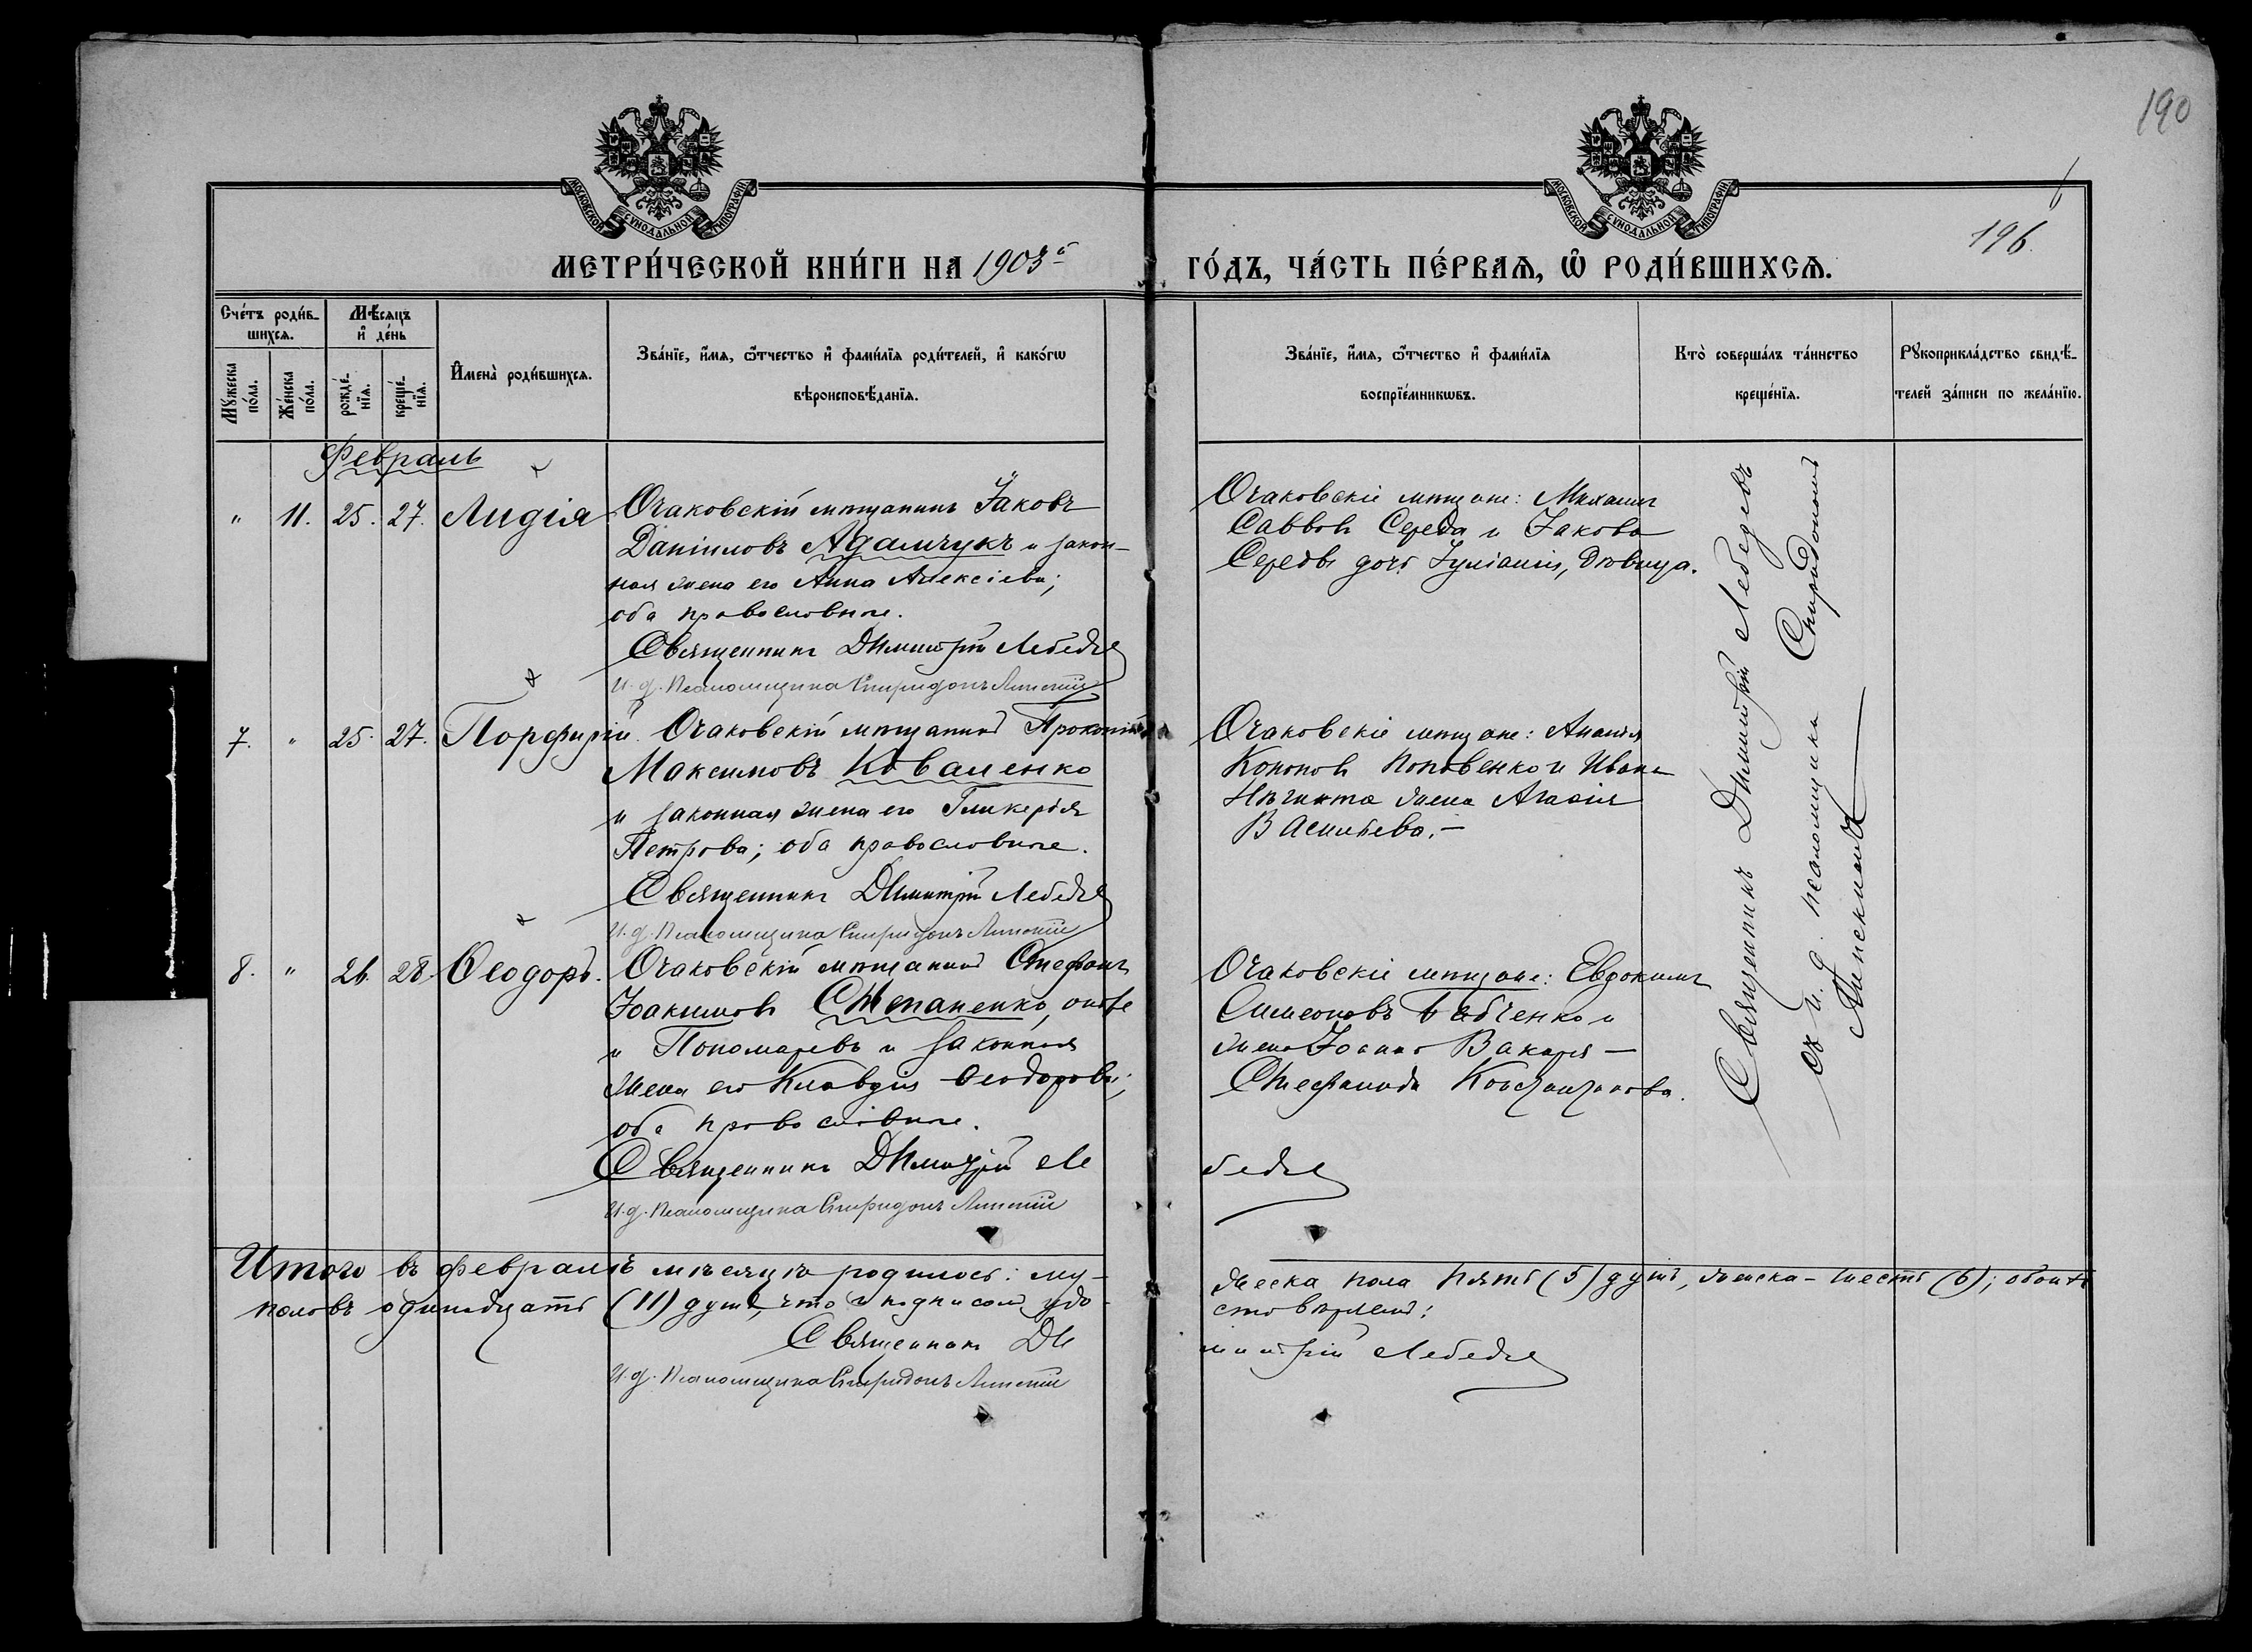 190
196.
МОСКОВСКОЙ СУНОДАЛЬНОЙ ТИПОГРАФІИ.
МОСКОВСКОЙ СУНОДАЛЬНОЙ ТИПОГРАФІИ.
МЕТРИ́ЧЕСКОЙ КНИ́ГИ НА 1903й ГО́ДЪ, ЧА́СТЬ ПЕ́РВАѦ, Ѿ РОДИ́ВШИХСѦ.
Сче́тъ роди́вшихсѧ.
Мꙋ́жеска по́ла.
Же́нска по́ла.
Мѣ́сѧцъ и҆ де́нь
рожде́нїѧ.
креще́нїѧ.
И҆мена̀ роди́вшихсѧ.
Зва́нїе, и҆́мѧ, ѻ҆́тчество и҆ фами́лїѧ роди́телей, и҆ како́гѡ
вѣроисповѣ́данїѧ.
Зва́нїе, и҆́мѧ, ѻ҆́тчество и҆ фами́лїѧ
воспрїе́мникѡвъ.
Кто̀ соверша́лъ та́инство
креще́нїѧ.
Рꙋкоприкла́дство свидѣ́телей за́писи по жела́нїю.
Февраль
" 11. 25. 27. Лидія
Очаковскій мѣщанинъ Іаковъ
Даніиловъ Адамчукъ и закон-
ная жена его Анна Алексіева;
оба православные.
Священникъ Димитрій Лебедев
И. д. Псаломщика Спиридонъ Липскій
Очаковскіе мѣщане: Михаилъ
Саввовъ Середа и Іакова
Середы дочь Іуліанія, дѣвица.
7. " 25. 27. Порфирій
Очаковскій мѣщанинъ Прокопій
Максимовъ Коваленко
и законная жена его Гликерія
Петрова; оба православные.
Священникъ Димитрій Лебедев
И. д. Псаломщика Спиридонъ Липскій
Очаковскіе мѣщане: Ананія
Кононовъ Поповенко и Ивана
жена Агафія
Васильева.—
8. " 26. 28. Ѳеодоръ.
Очаковскій мѣщанинъ Стефанъ
Іоакимовъ Степаненко, онъ же
и Пономаревъ и законная
жена его Клавдія Ѳеодорова;
оба православные.
Священникъ Димитрій Лебедев
И. д. Псаломщика Спиридонъ Липскій
Очаковскіе мѣщане: Евдокимъ
Симеоновъ Бабченко и
жена Іоанна Вакаря —
Стефанида Константинова.
Священникъ Димитрій Лебедевъ
съ и. д. псаломщика Спиридономъ
Липскимъ
Итого въ февралѣ мѣсяцѣ родилось: мужеска пола пять (5) душъ, женска - шесть (6); обоихъ
половъ одинадцать (11) душъ, что и подписомъ удостовѣряемъ:
Священникъ Димитрій Лебедев
И. д. Псаломщика Спиридонъ Липскій